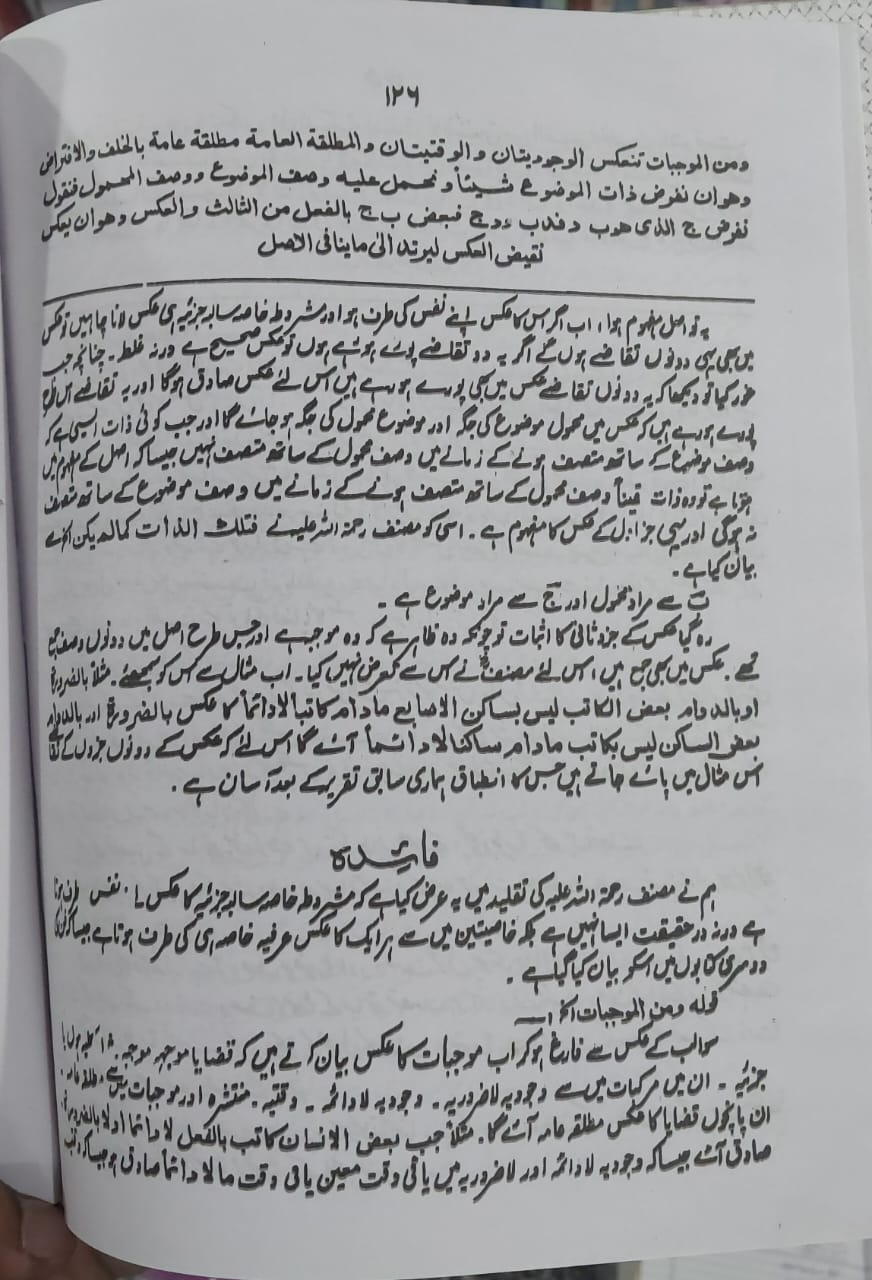 ١٢٦
ومن الموجبات تنعكس الوجوديتان والوقتيتان والمطلقة العامة مطلقة عامة بالخلف والافتراض
وهوان نفرض ذات الموضوع شيئاً ونحمل عليه وصف الموضوع ووصف المحمول فنقول
نفرض ج الذی هوب د فدب ودج فبعض ب ج بالفعل من الثالث والعكس وهوان يعكس
نقيض العكس ليرتد الیٰ ماينافی الاصل
یہ تو اصل مفہوم ہوا، اب اگر اس کا عکس اپنے نفس کی طرف ہو اور مشروطہ خاصہ سالبہ جزئیہ ہی عکس لانا چاہیں تو عکس
میں بھی یہی دونوں تقاضے ہوں گے اگر یہ دو تقاضے پورے ہوئے ہوں تو عکس صحیح ہے ورنہ غلط۔ چنانچہ جب
غور کیا تو دیکھا کہ یہ دونوں تقاضے عکس میں بھی پورے ہورہے ہیں اس لئے عکس صادق ہوگا اور یہ تقاضے اس طرح
پورے ہورہے ہیں کہ عکس میں محمول موضوع کی جگہ اور موضوع محمول کی جگہ ہو جائے گا اور جب کوئی ذات ایسی ہے کہ
وصف موضوع کے ساتھ متصف ہونے کے زمانے میں وصف محمول کے ساتھ متصف نہیں جیسا کہ اصل کے مفہوم میں
ہوتا ہے تو وہ ذات یقیناً وصف محمول کے ساتھ متصف ہونے کے زمانے میں وصف موضوع کے ساتھ متصف
نہ ہوگی اور یہی جز اول کے عکس کا مفہوم ہے۔ اسی کو مصنف رحمۃ اللہ علیہ نے فتلك الذات كمالم يكن الخ سے
بیان کیا ہے۔
ب سے مراد محمول اور ج سے مراد موضوع ہے۔
رہ گیا عکس کے جزو ثانی کا اثبات تو چونکہ وہ ظاہر ہے کہ وہ موجبہ ہے اور جس طرح اصل میں دونوں وصف جمع
تھے۔ عکس میں بھی جمع ہیں، اس لئے مصنفؒ نے اس سے تعرض نہیں کیا۔ اب مثال سے اس کو سمجھئے۔ مثلاً بالضرورۃ
اوبالدوام بعض الكاتب ليس بساكن الاصابع مادام كاتباً لادائماً کا عکس بالضرورۃ اور بالدوام
بعض الساكن ليس بكاتب مادام ساكنا لا دائماً آئے گا اس لئے کہ عکس کے دونوں جزوں کے
اس مثال میں پائے جاتے ہیں جس کا انطباق ہماری سابق تقریر کے بعد آسان ہے۔
فائدہ
ہم نے مصنف رحمۃ اللہ علیہ کی تقلید میں یہ عرض کیا ہے کہ مشروطہ خاصہ سالبہ جزئیہ کا عکس نفس طرف ہوتا
ہے ورنہ درحقیقت ایسا نہیں ہے بلکہ خاصیتین میں سے ہر ایک کا عکس عرفیہ خاصہ ہی کی طرف ہوتا ہے جیسا کہ
دوسری کتابوں میں اسکو بیان کیا گیا ہے۔
قولہ ومن الموجبات الخ
سوالب کے عکس سے فارغ ہو کر اب موجبات کا عکس بیان کرتے ہیں کہ قضایا موجہہ موجبہ کلیہ ہوں یا
جزئیہ۔ ان میں مرکبات میں سے وجودیہ لاضروریہ۔ وجودیہ لادائمہ۔ وقتیہ۔ منتشرہ اور موجبات میں سے مطلقہ عامہ۔
ان پانچوں قضایا کا عکس مطلقہ عامہ آئے گا۔ مثلاً جب بعض الانسان كاتب بالفعل لادائماً اولا بالضرورۃ
صادق آئے جیسا کہ وجودیہ لادائمہ اور لاضروریہ میں یا فی وقت معین یا فی وقت ما لادائماً صادق ہو جیسا کہ